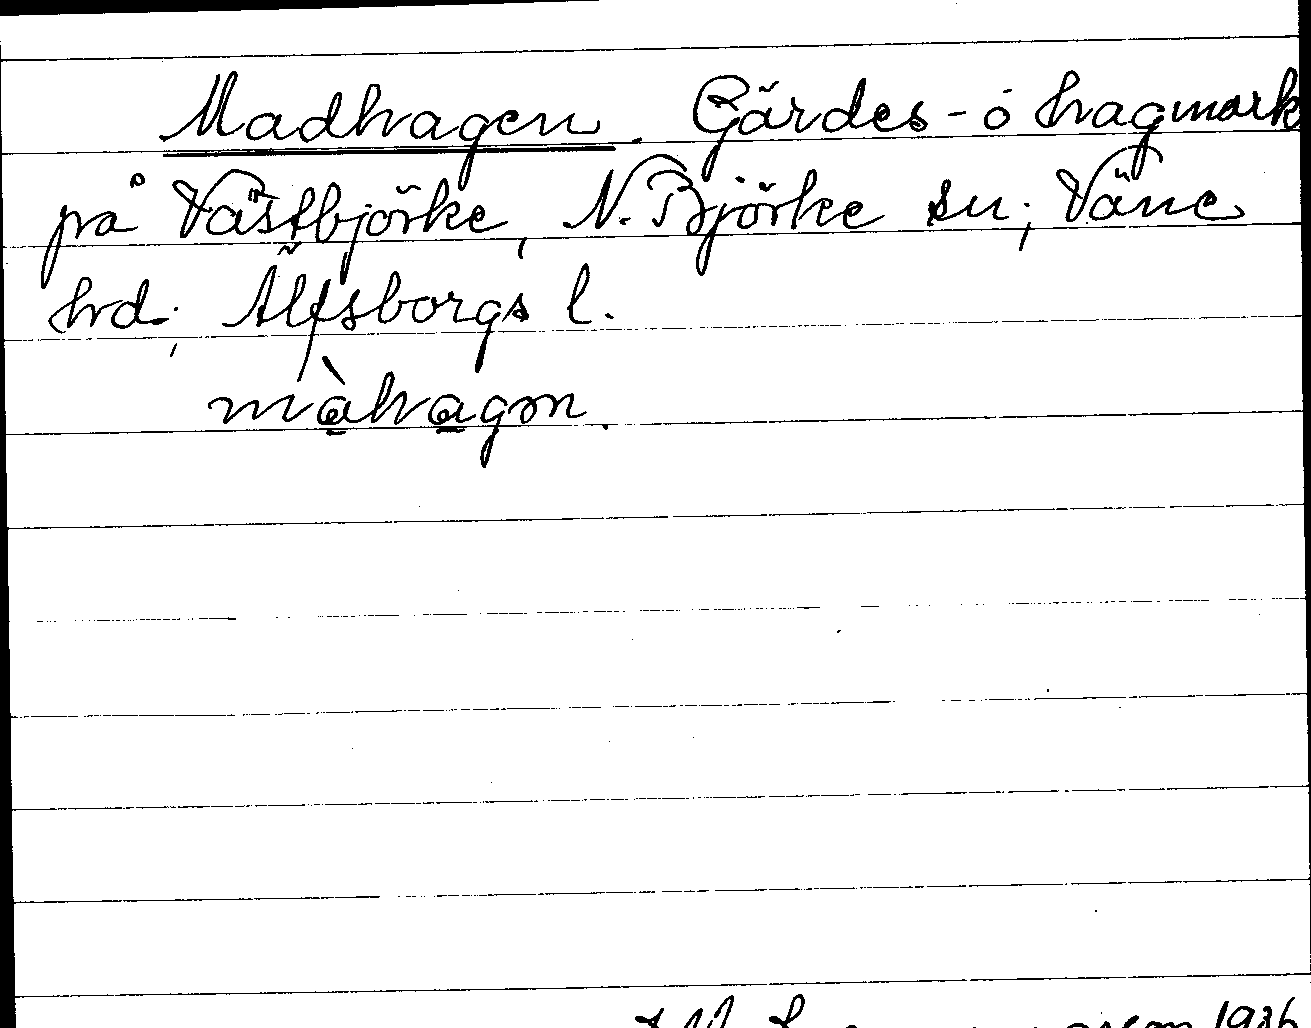 Madhagen. Gärdes- o hagmark
på Västbjörke, N. Björke sn; Väne
hrd; Älfsborgs l.
màhagən.
1936